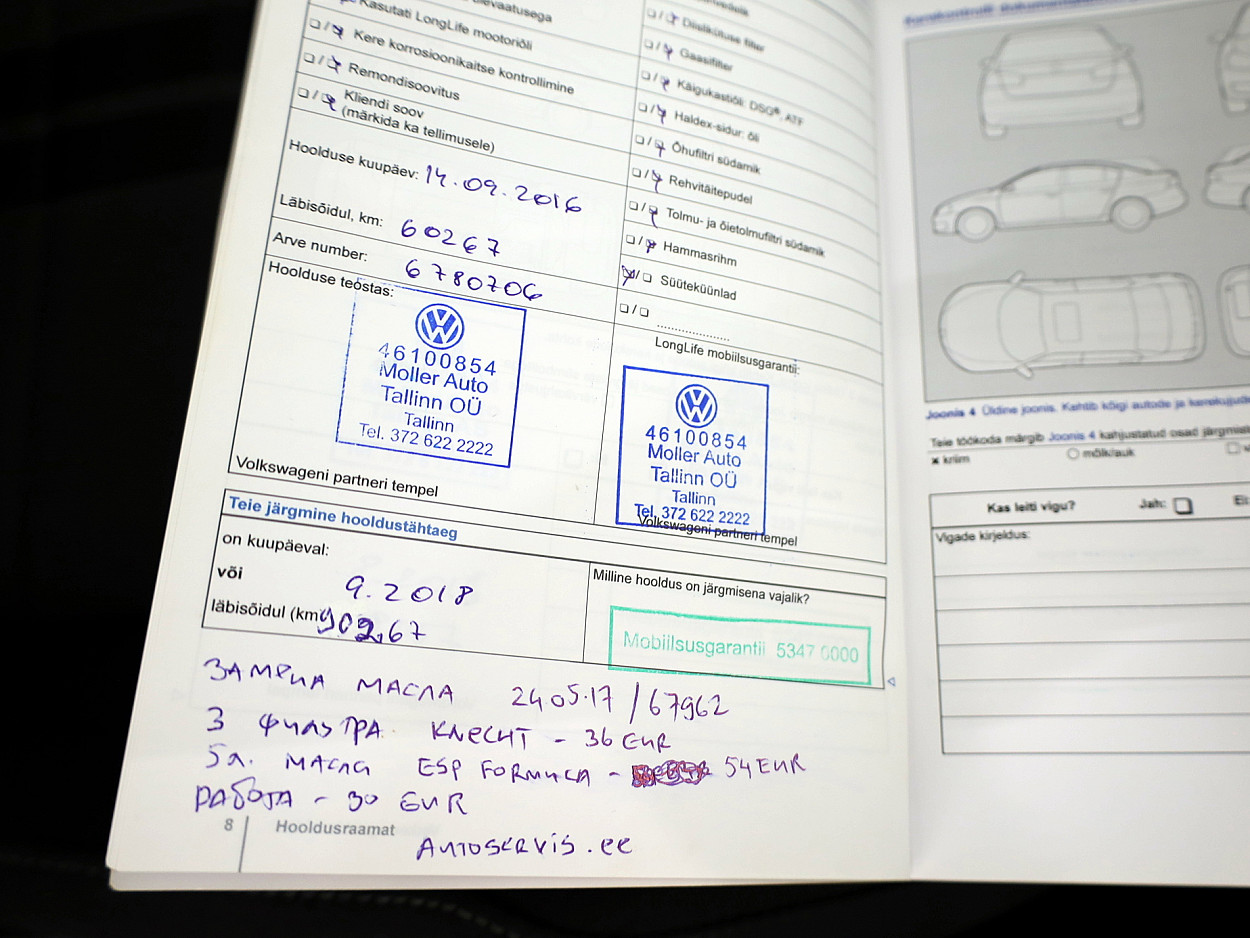 Kasutati LongLife mootoriõli
Kere korrosioonikaitse kontrollimine
Remondisoovitus
Kliendi soov
(märkida ka tellimusele)
Hoolduse kuupäev: 14.09.2016
Läbisõidul, km: 60267
Arve number: 6780706
Hoolduse teostas:
46100854
Moller Auto
Tallinn OÜ
Tallinn
Tel. 372 622 2222
Volkswageni partneri tempel
Diislikütuse filter
Gaasifilter
Käigukastiõli: DSG®, ATF
Haldex-sidur: õli
Õhufiltri südamik
Rehvitäitepudel
Tolmu- ja õietolmufiltri südamik
Hammasrihm
Süüteküünlad
LongLife mobiilsusgarantii:
46100854
Moller Auto
Tallinn OÜ
Tallinn
Tel. 372 622 2222
Volkswageni partneri tempel
Teie järgmine hooldustähtaeg
on kuupäeval:
või 9.2018
läbisõidul (km 90267
Milline hooldus on järgmisena vajalik?
Mobiilsusgarantii 5347 0000
ЗАМЕНА МАСЛА 24.05.17 / 67962
3 ФИЛЬТРА KNECHT - 36 EUR
5л. МАСЛА ESP FORMULA - 54 EUR
РАБОТА - 30 EUR
AUTOSERVIS.ee
8 Hooldusraamat
Joonis 4 Üldine joonis. Kehtib kõigi autode ja
Teie töökoda märgib Joonis 4 kahjustatud osad
kriim mõlk/auk
Kas leiti vigu? Jah:
Vigade kirjeldus: